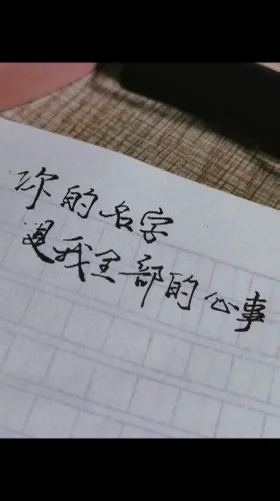 你的名字
是我全部的心事